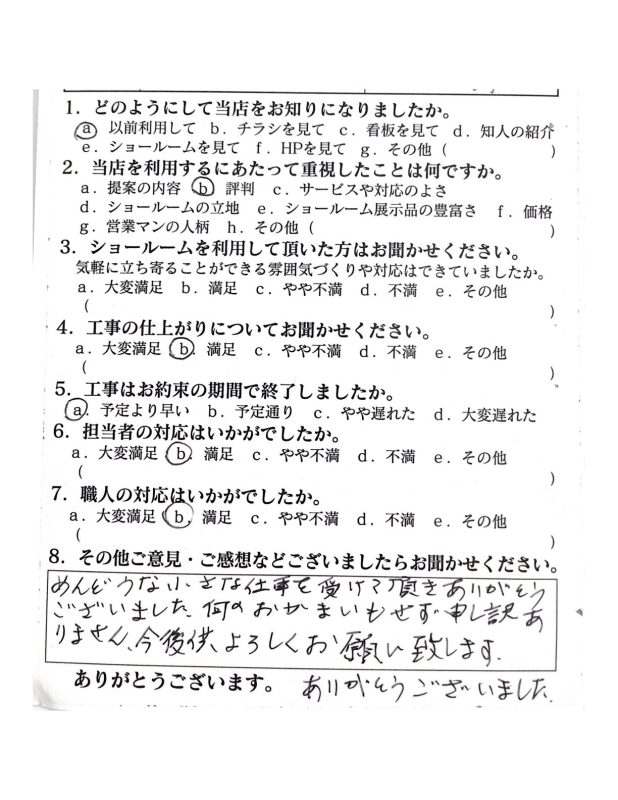 1．どのようにして当店をお知りになりましたか。
a 以前利用して b．チラシを見て c．看板を見て d．知人の紹介
e．ショールームを見て f．HPを見て g．その他（ ）
2．当店を利用するにあたって重視したことは何ですか。
a．提案の内容 b 評判 c．サービスや対応のよさ
d．ショールームの立地 e．ショールーム展示品の豊富さ f．価格
g．営業マンの人柄 h．その他（ ）
3．ショールームを利用して頂いた方はお聞かせください。
気軽に立ち寄ることができる雰囲気づくりや対応はできていましたか。
a．大変満足 b．満足 c．やや不満 d．不満 e．その他
（ ）
4．工事の仕上がりについてお聞かせください。
a．大変満足 b．満足 c．やや不満 d．不満 e．その他
（ ）
5．工事はお約束の期間で終了しましたか。
a．予定より早い b．予定通り c．やや遅れた d．大変遅れた
6．担当者の対応はいかがでしたか。
a．大変満足 b．満足 c．やや不満 d．不満 e．その他
（ ）
7．職人の対応はいかがでしたか。
a．大変満足 b．満足 c．やや不満 d．不満 e．その他
（ ）
8．その他ご意見・ご感想などございましたらお聞かせください。
めんどうな小さな仕事を受けて頂きありがとう
ございました、何のおかまいもせず申し訳あ
りません、今後供、よろしくお願い致します。
ありがとうございます。 ありがとうございました。